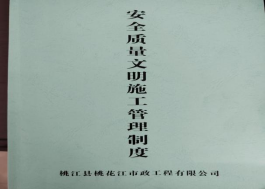 安全质量文明施工管理制度
桃江县桃花江市政工程有限公司